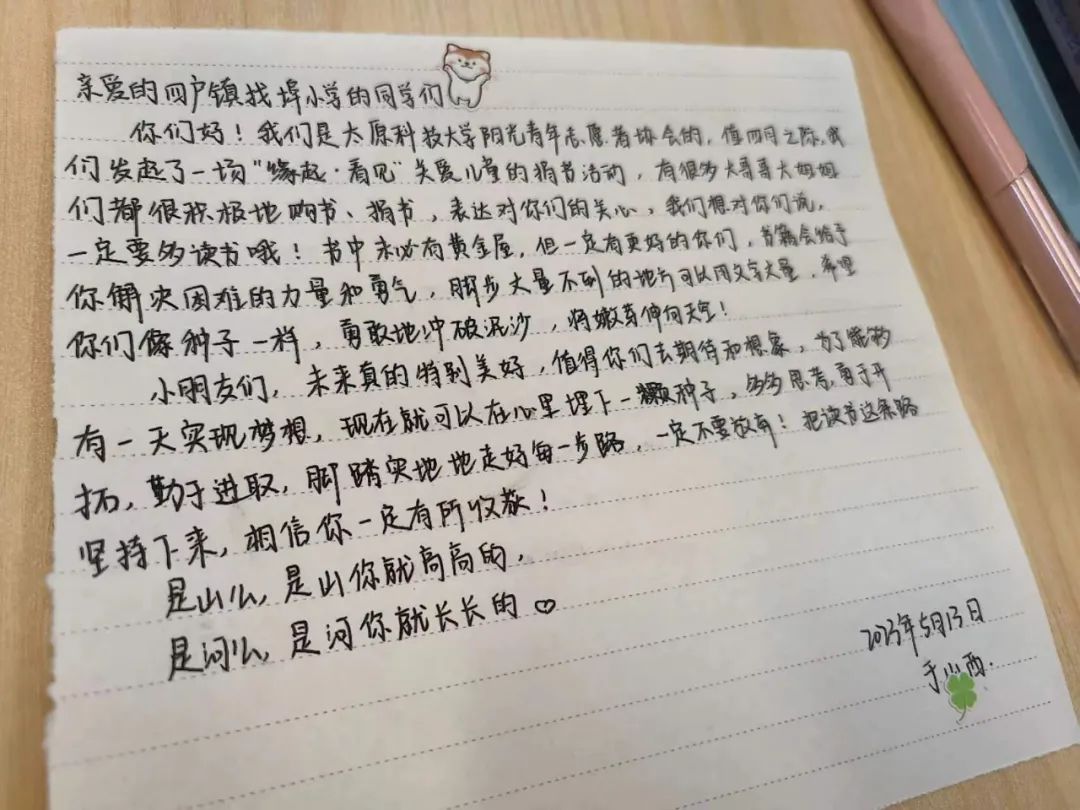 亲爱的四户镇找埠小学的同学们
你们好！我们是太原科技大学阳光青年志愿者协会的，值四月之际，我
们发起了一场“缘起·看见”关爱儿童的捐书活动，有很多大哥哥大姐姐
们都很积极地购书、捐书，表达对你们的关心，我们想对你们说，
一定要多读书哦！书中未必有黄金屋，但一定有更好的你们，书籍会给予
你解决困难的力量和勇气，脚步丈量不到的地方可以用文字丈量，希望
你们像种子一样，勇敢地冲破泥沙，将嫩芽伸向天空！
小朋友们，未来真的特别美好，值得你们去期待和想象，为了能够
有一天实现梦想，现在就可以在心里埋下一颗种子，多多思考，勇于开
拓，勤于进取，脚踏实地地走好每一步路，一定不要放弃！把读书这条路
坚持下来，相信你一定有所收获！
是山么，是山你就高高的，
是河么，是河你就长长的
2023年5月13日
于山西.